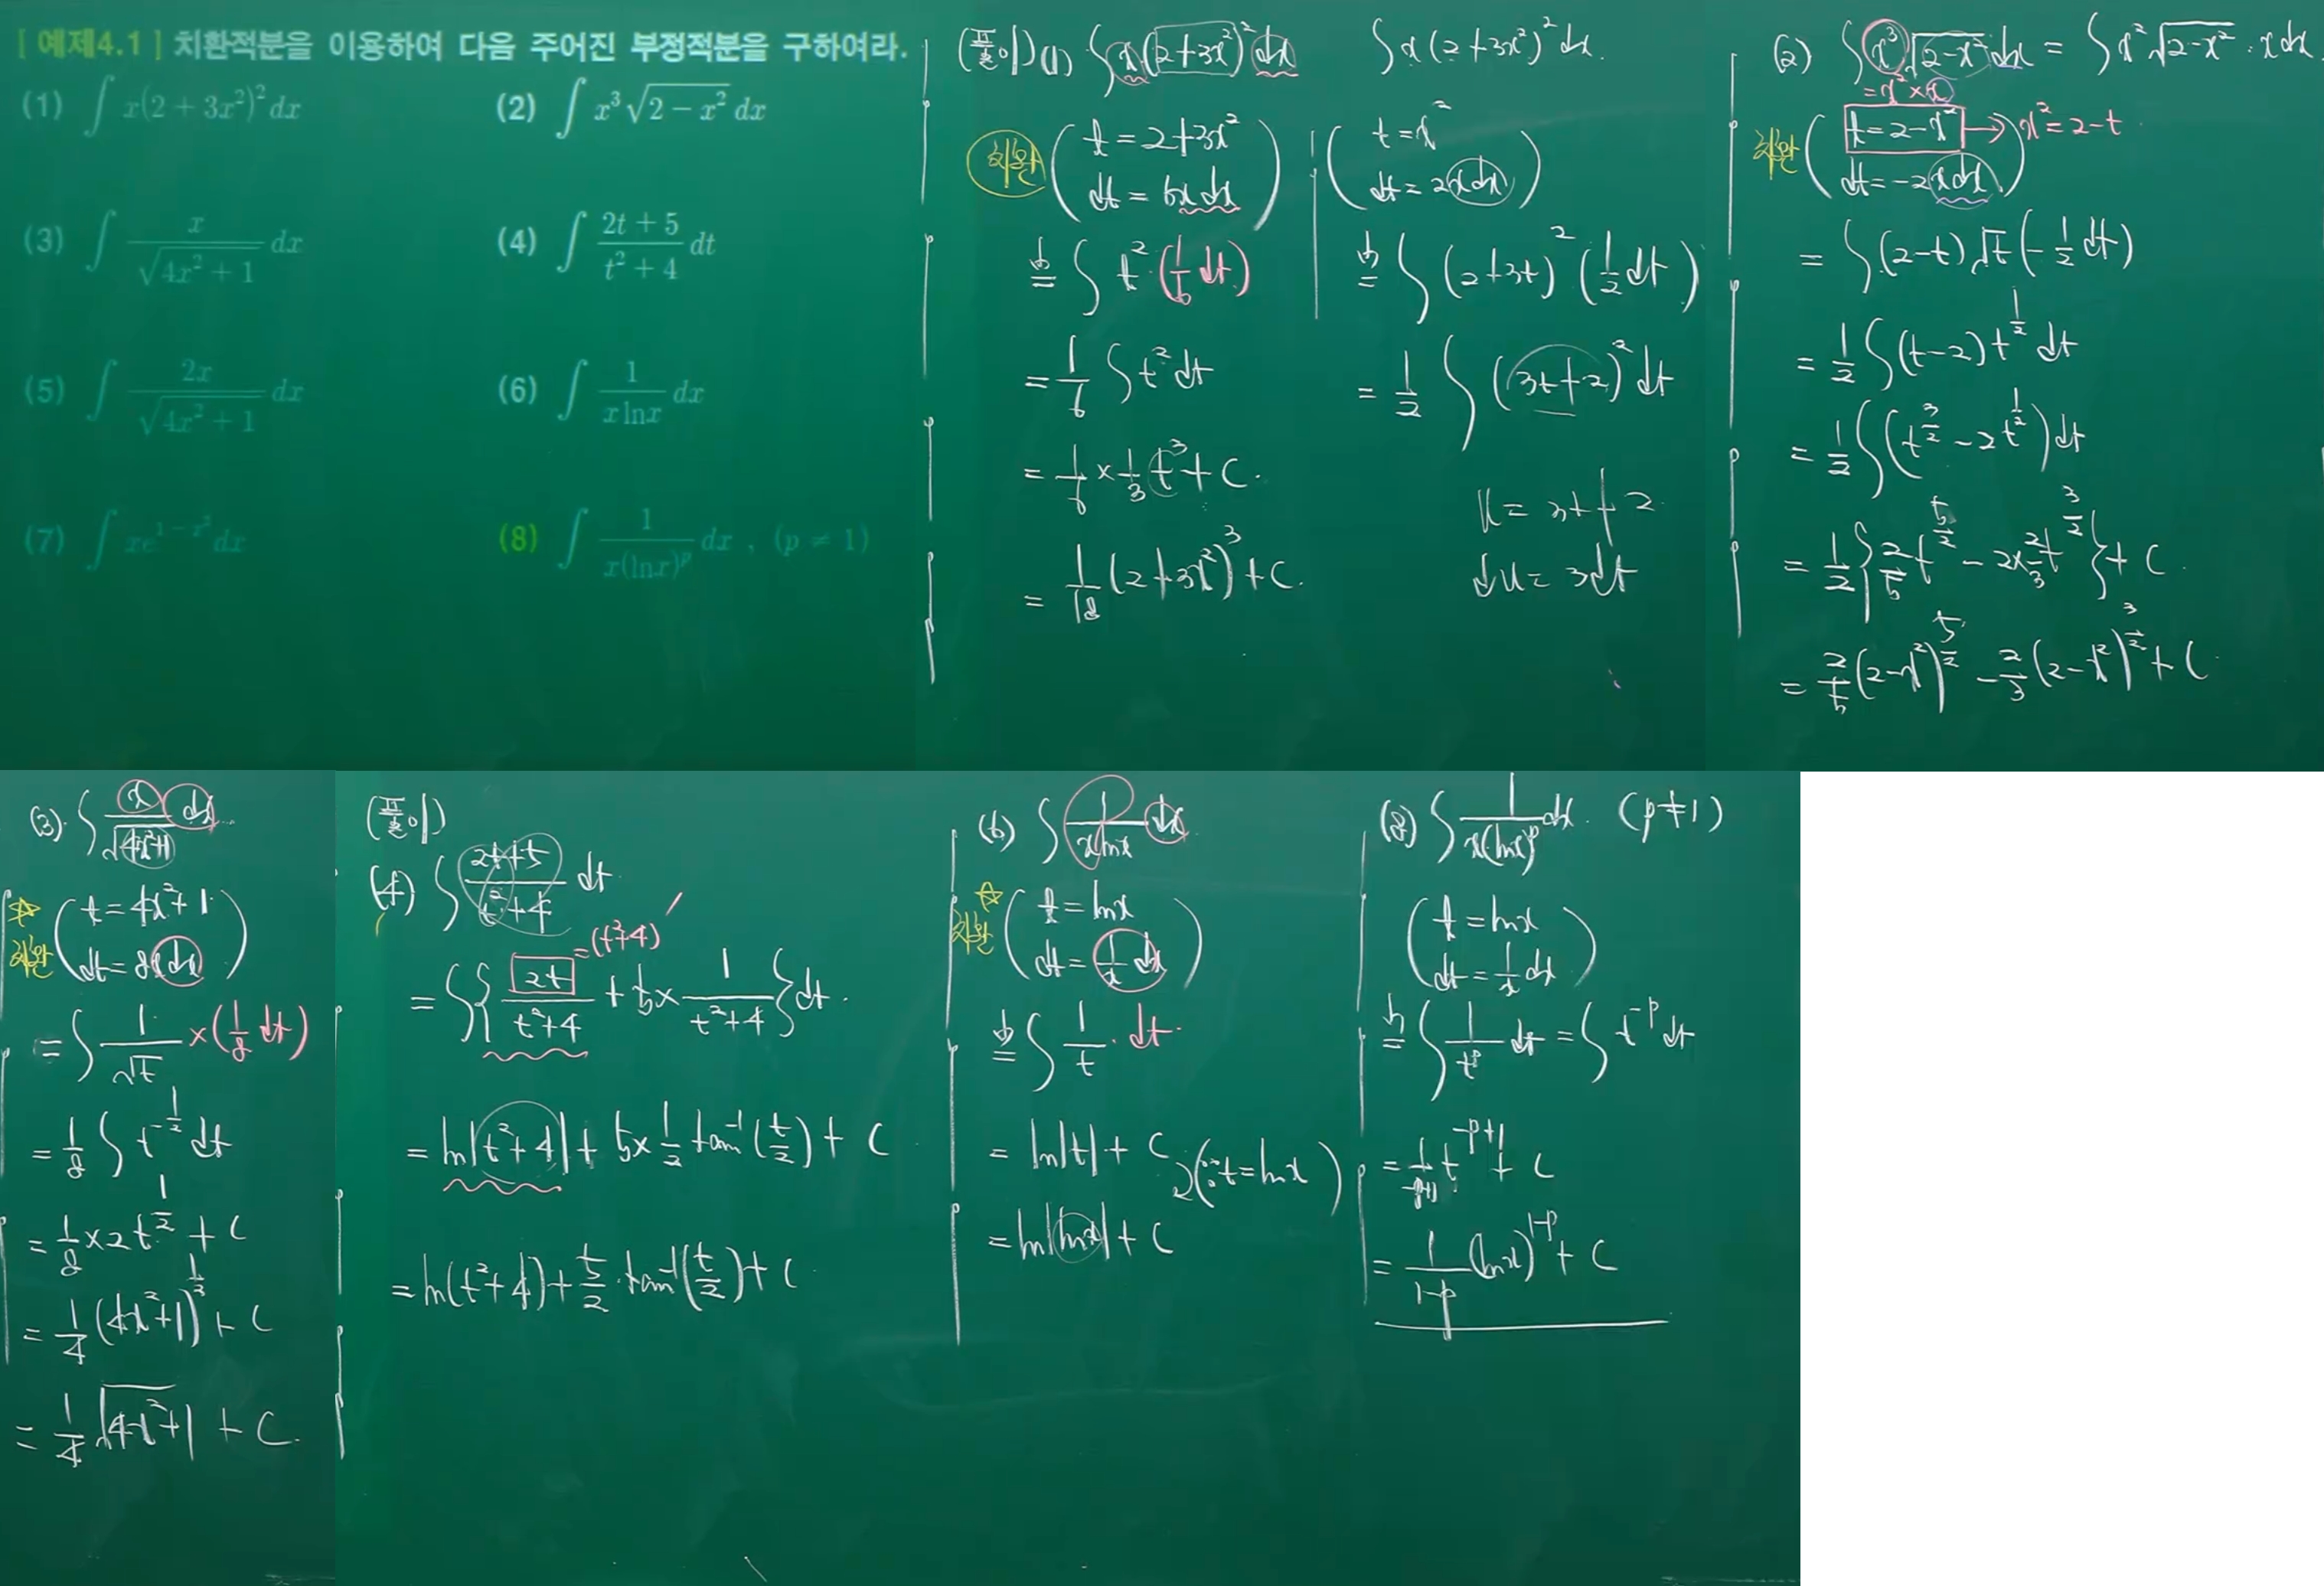 [ 예제4.1 ] 치환적분을 이용하여 다음 주어진 부정적분을 구하여라.
(1) ∫ x(2 + 3x²)² dx
(2) ∫ x³ √(2 − x²) dx
(3) ∫ x / √(4x² + 1) dx
(4) ∫ (2t + 5) / (t² + 4) dt
(5) ∫ 2x / √(4x² + 1) dx
(6) ∫ 1 / (x lnx) dx
(7) ∫ xe^(1 − x²) dx
(8) ∫ 1 / (x(lnx)^p) dx , (p ≠ 1)
(풀이) (1) ∫ x(2+3x²)² dx
치환 ( t = 2+3x²
dt = 6x dx )
≐ ∫ t² · (1/6 dt)
= 1/6 ∫ t² dt
= 1/6 × 1/3 t³ + C.
= 1/18 (2+3x²)³ + C.
∫ x(2+3x²)² dx.
( t = x²
dt = 2x dx )
≐ ∫ (2+3t)² (1/2 dt)
= 1/2 ∫ (3t+2)² dt
u = 3t+2
du = 3dt
(2) ∫ x³ √(2−x²) dx = ∫ x² √(2−x²) · x dx
= x² × x
치환 ( t = 2−x² → x² = 2−t
dt = −2x dx )
= ∫ (2−t) √t (−1/2 dt)
= 1/2 ∫ (t−2) t^(1/2) dt
= 1/2 ∫ (t^(3/2) − 2t^(1/2)) dt
= 1/2 { 2/5 t^(5/2) − 2×2/3 t^(3/2) } + C
= 2/5 (2−x²)^(5/2) − 2/3 (2−x²)^(3/2) + C
(3). ∫ x / √(4x²+1) dx
☆ 치환 ( t = 4x²+1
dt = 8x dx )
= ∫ 1/√t × (1/8 dt)
= 1/8 ∫ t^(−1/2) dt
= 1/8 × 2t^(1/2) + C
= 1/4 (4x²+1)^(1/2) + C
= 1/4 √(4x²+1) + C.
(풀이)
(4) ∫ (2t+5) / (t²+4) dt
= (t²+4)′
= ∫ { 2t / (t²+4) + 5 × 1 / (t²+4) } dt.
= ln|t²+4| + 5 × 1/2 tan⁻¹(t/2) + C
= ln(t²+4) + 5/2 · tan⁻¹(t/2) + C
(6) ∫ 1 / (x lnx) dx
☆ 치환 ( t = lnx
dt = 1/x dx )
≐ ∫ 1/t · dt
= ln|t| + C
(∵ t = lnx)
= ln|lnx| + C
(8) ∫ 1 / (x(lnx)^p) dx. (p≠1)
( t = lnx
dt = 1/x dx )
≐ ∫ 1/t^p dt = ∫ t^(−p) dt
= 1/(−p+1) t^(−p+1) + C
= 1/(1−p) (lnx)^(1−p) + C